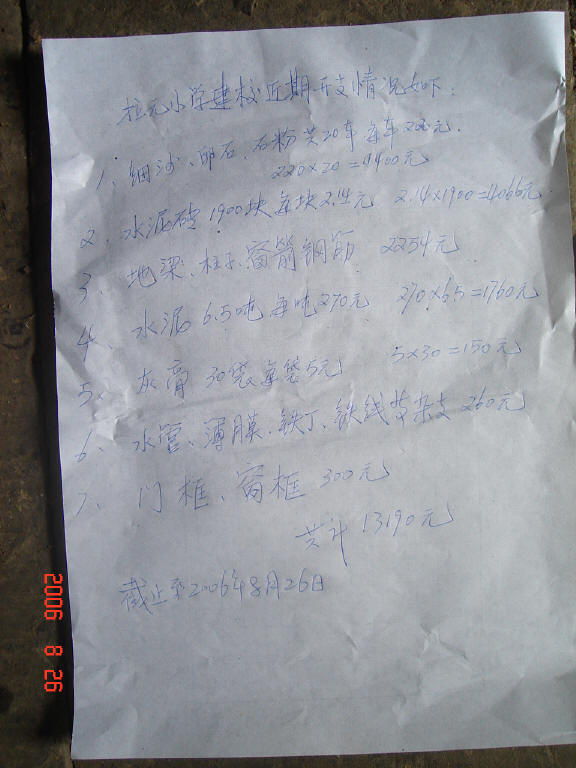 拉元小学建校近期开支情况如下：
1、细沙、卵石、石粉共20车每车220元.
220×20=4400元
2、水泥砖1900块每块2.14元 2.14×1900=4066元
3、地梁、柱子、窗箭钢筋 2254元
4、水泥6.5吨每吨270元 270×6.5=1760元
5、灰膏30袋每袋5元 5×30=150元
6、水管、薄膜、铁丁、铁线等杂支260元
7、门框、窗框300元
共计13190元
截止至2006年8月26日
2006 8 26